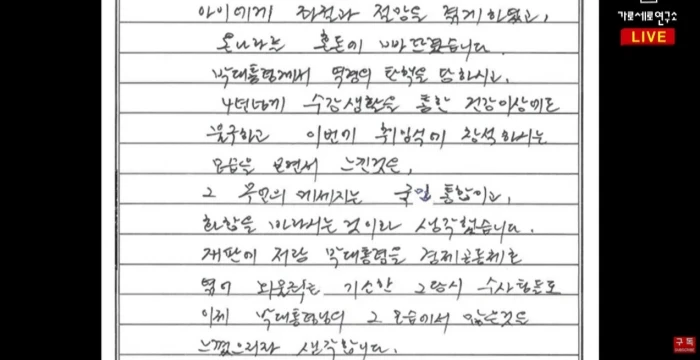 아이에게 좌절과 절망을 겪게 하였고,
온나라는 혼돈에 빠뜨렸습니다.
박대통령께서 역경의 탄핵을 당하시고,
4년여에게 수감생활을 통한 건강이상에도
불구하고 이번에 취임식에 참석하시는
모습을 보면서 느낀것은,
그 무언의 메세지는 국민통합이고,
화합을 바라시는 것이라 생각했습니다.
재판에 저랑 박대통령을 경제공동체로
엮어 뇌물죄로 기소한 그당시 수사팀들도
이제 박대통령님의 그 모습에서 많은것은
느꼈으리라 생각합니다.
가로세로연구소
LIVE
구독